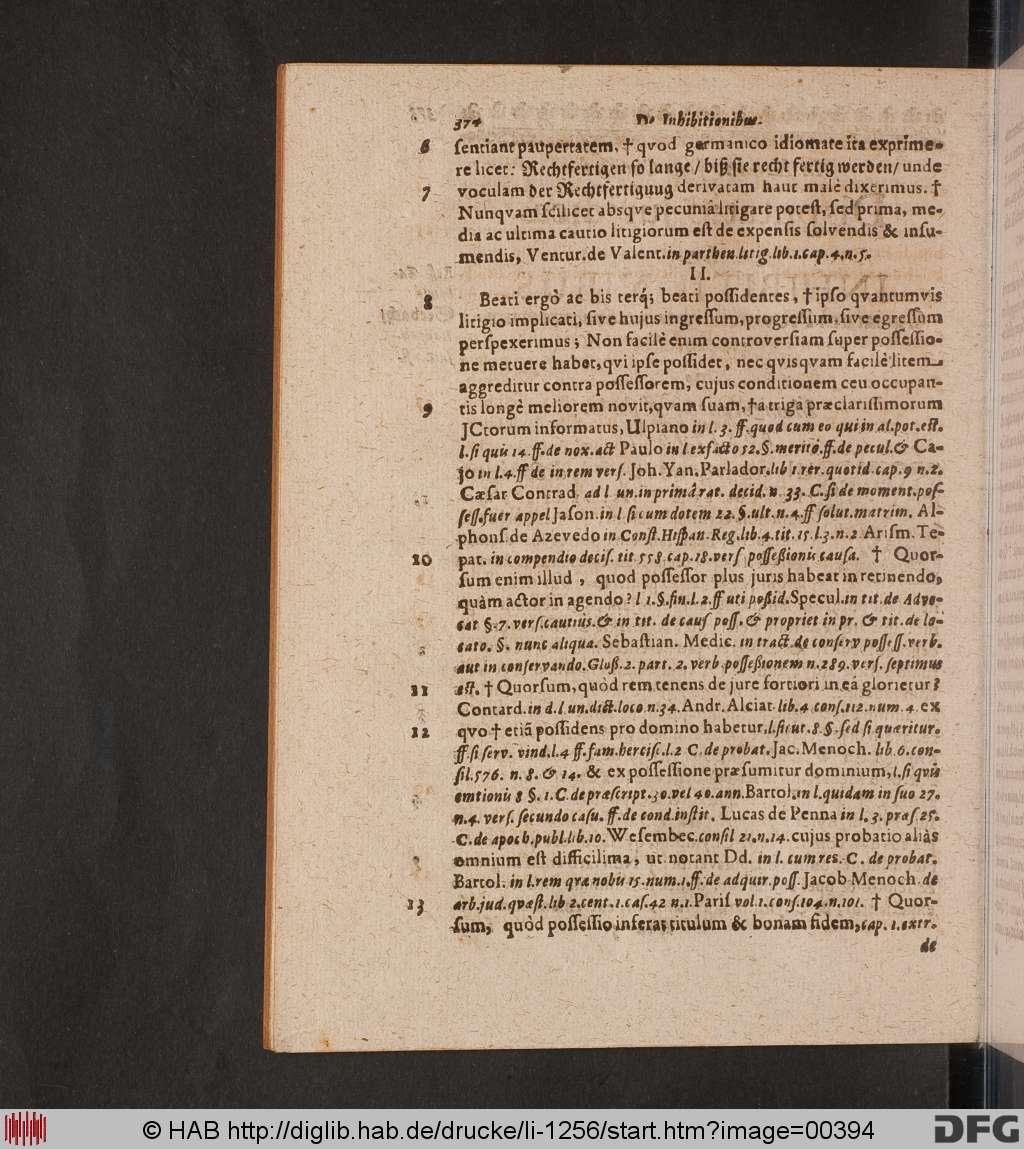 374 De Inhibitionibus.
6 ſentiant paupertatem, † qvod germanico idiomate ita exprime-
re licet: Rechtfertigen ſo lange / biß ſie recht fertig werden / unde
7 voculam der Rechtfertigung derivatam haut malè dixerimus. †
Nunqvam ſcilicet absqve pecuniâ litigare poteſt, ſed prima, me-
dia ac ultima cautio litigiorum eſt de expenſis ſolvendis & inſu-
mendis, Ventur. de Valent. in parthen. litig. lib. 1. cap. 4. n. 5.
II.
8 Beati ergò ac bis terq́; beati poſſidentes, † ipſo qvantumvis
litigio implicati, ſive hujus ingreſſum, progreſſum, ſive egreſſum
perſpexerimus; Non facilè enim controverſiam ſuper poſſeſſio-
ne metuere habet, qvi ipſe poſſidet, nec qvisqvam facilè litem
aggreditur contra poſſeſſorem, cujus conditionem ceu occupan-
9 tis longè meliorem novit, qvam ſuam, † a triga præclariſſimorum
JCtorum informatus, Ulpiano in l. 3. ff. quod cum eo qui in al. pot. eſt.
l. ſi quis 14. ff. de nox. act Paulo in l ex facto 52. §. meritò. ff. de pecul. & Ca-
jo in l. 4. ff de in rem verſ. Joh. Yan. Parlador. lib 1 rer. quotid. cap. 9 n. 2.
Cæſar Contrad. ad l un. in primâ rat. decid. n. 33. C. ſi de moment. poſ-
ſeſſ. fuer appel Jaſon. in l ſi cum dotem 22. §. ult. n. 4. ff ſolut. matrim. Al-
phonſ. de Azevedo in Conſt. Hiſpan. Reg. lib. 4. tit. 15. l. 3. n. 2 Ariſm. Te-
10 pat. in compendio deciſ. tit 558. cap. 18. verſ poſſeßionis cauſa. † Quor-
ſum enim illud, quod poſſeſſor plus juris habeat in retinendo,
quàm actor in agendo? l 1. §. fin. l. 2. ff uti poßid. Specul. in tit. de Advo-
cat §. 7. verſ. cautius. & in tit. de cauſ poſſ. & propriet in pr. & tit. de lo-
cato. §. nunc aliqua. Sebaſtian. Medic. in tract. de conſerv poſſeſſ. verb.
aut in conſervando. Gloß. 2. part. 2. verb poſſeßionem n. 289. verſ. ſeptimus
11 eſt. † Quorſum, quòd rem tenens de jure fortiori in eâ glorietur?
Contard. in d. l un. dict. loco n. 34. Andr. Alciat lib. 4 conſ. 112. num. 4. ex
12 qvo † etiã poſſidens pro domino habetur, l. ſicut. 8. §. ſed ſi quæritur.
ff. ſi ſerv. vind. l. 4 ff. fam. herciſc. l. 2 C. de probat. Jac. Menoch. lib. 6. con-
ſil. 576. n. 8. & 14. & ex poſſeſſione præſumitur dominium, l. ſi qvis
emtionis 8 §. 1. C. de præſcript. 30. vel 40. ann. Bartol. in l. quidam in ſuo 27.
n. 4. verſ. ſecundo caſu. ff. de cond. inſtit. Lucas de Penna in l. 3. præſ 25.
C. de apoch. publ. lib. 10. Weſembec. conſil 21. n. 14. cujus probatio aliàs
omnium eſt difficilima, ut notant Dd. in l. cum res. C. de probat.
Bartol. in l. rem qvæ nobis 15. num. 1. ff. de adquir. poſſ. Jacob Menoch. de
13 arb. jud. qvæſt. lib 2. cent. 1. caſ. 42 n. 1. Pariſ vol. 1. conſ. 104. n. 101. † Quor-
ſum, quòd poſſeſſio inferat titulum & bonam fidem, cap. 1. extr.
de
© HAB http://diglib.hab.de/drucke/li-1256/start.htm?image=00394
DFG